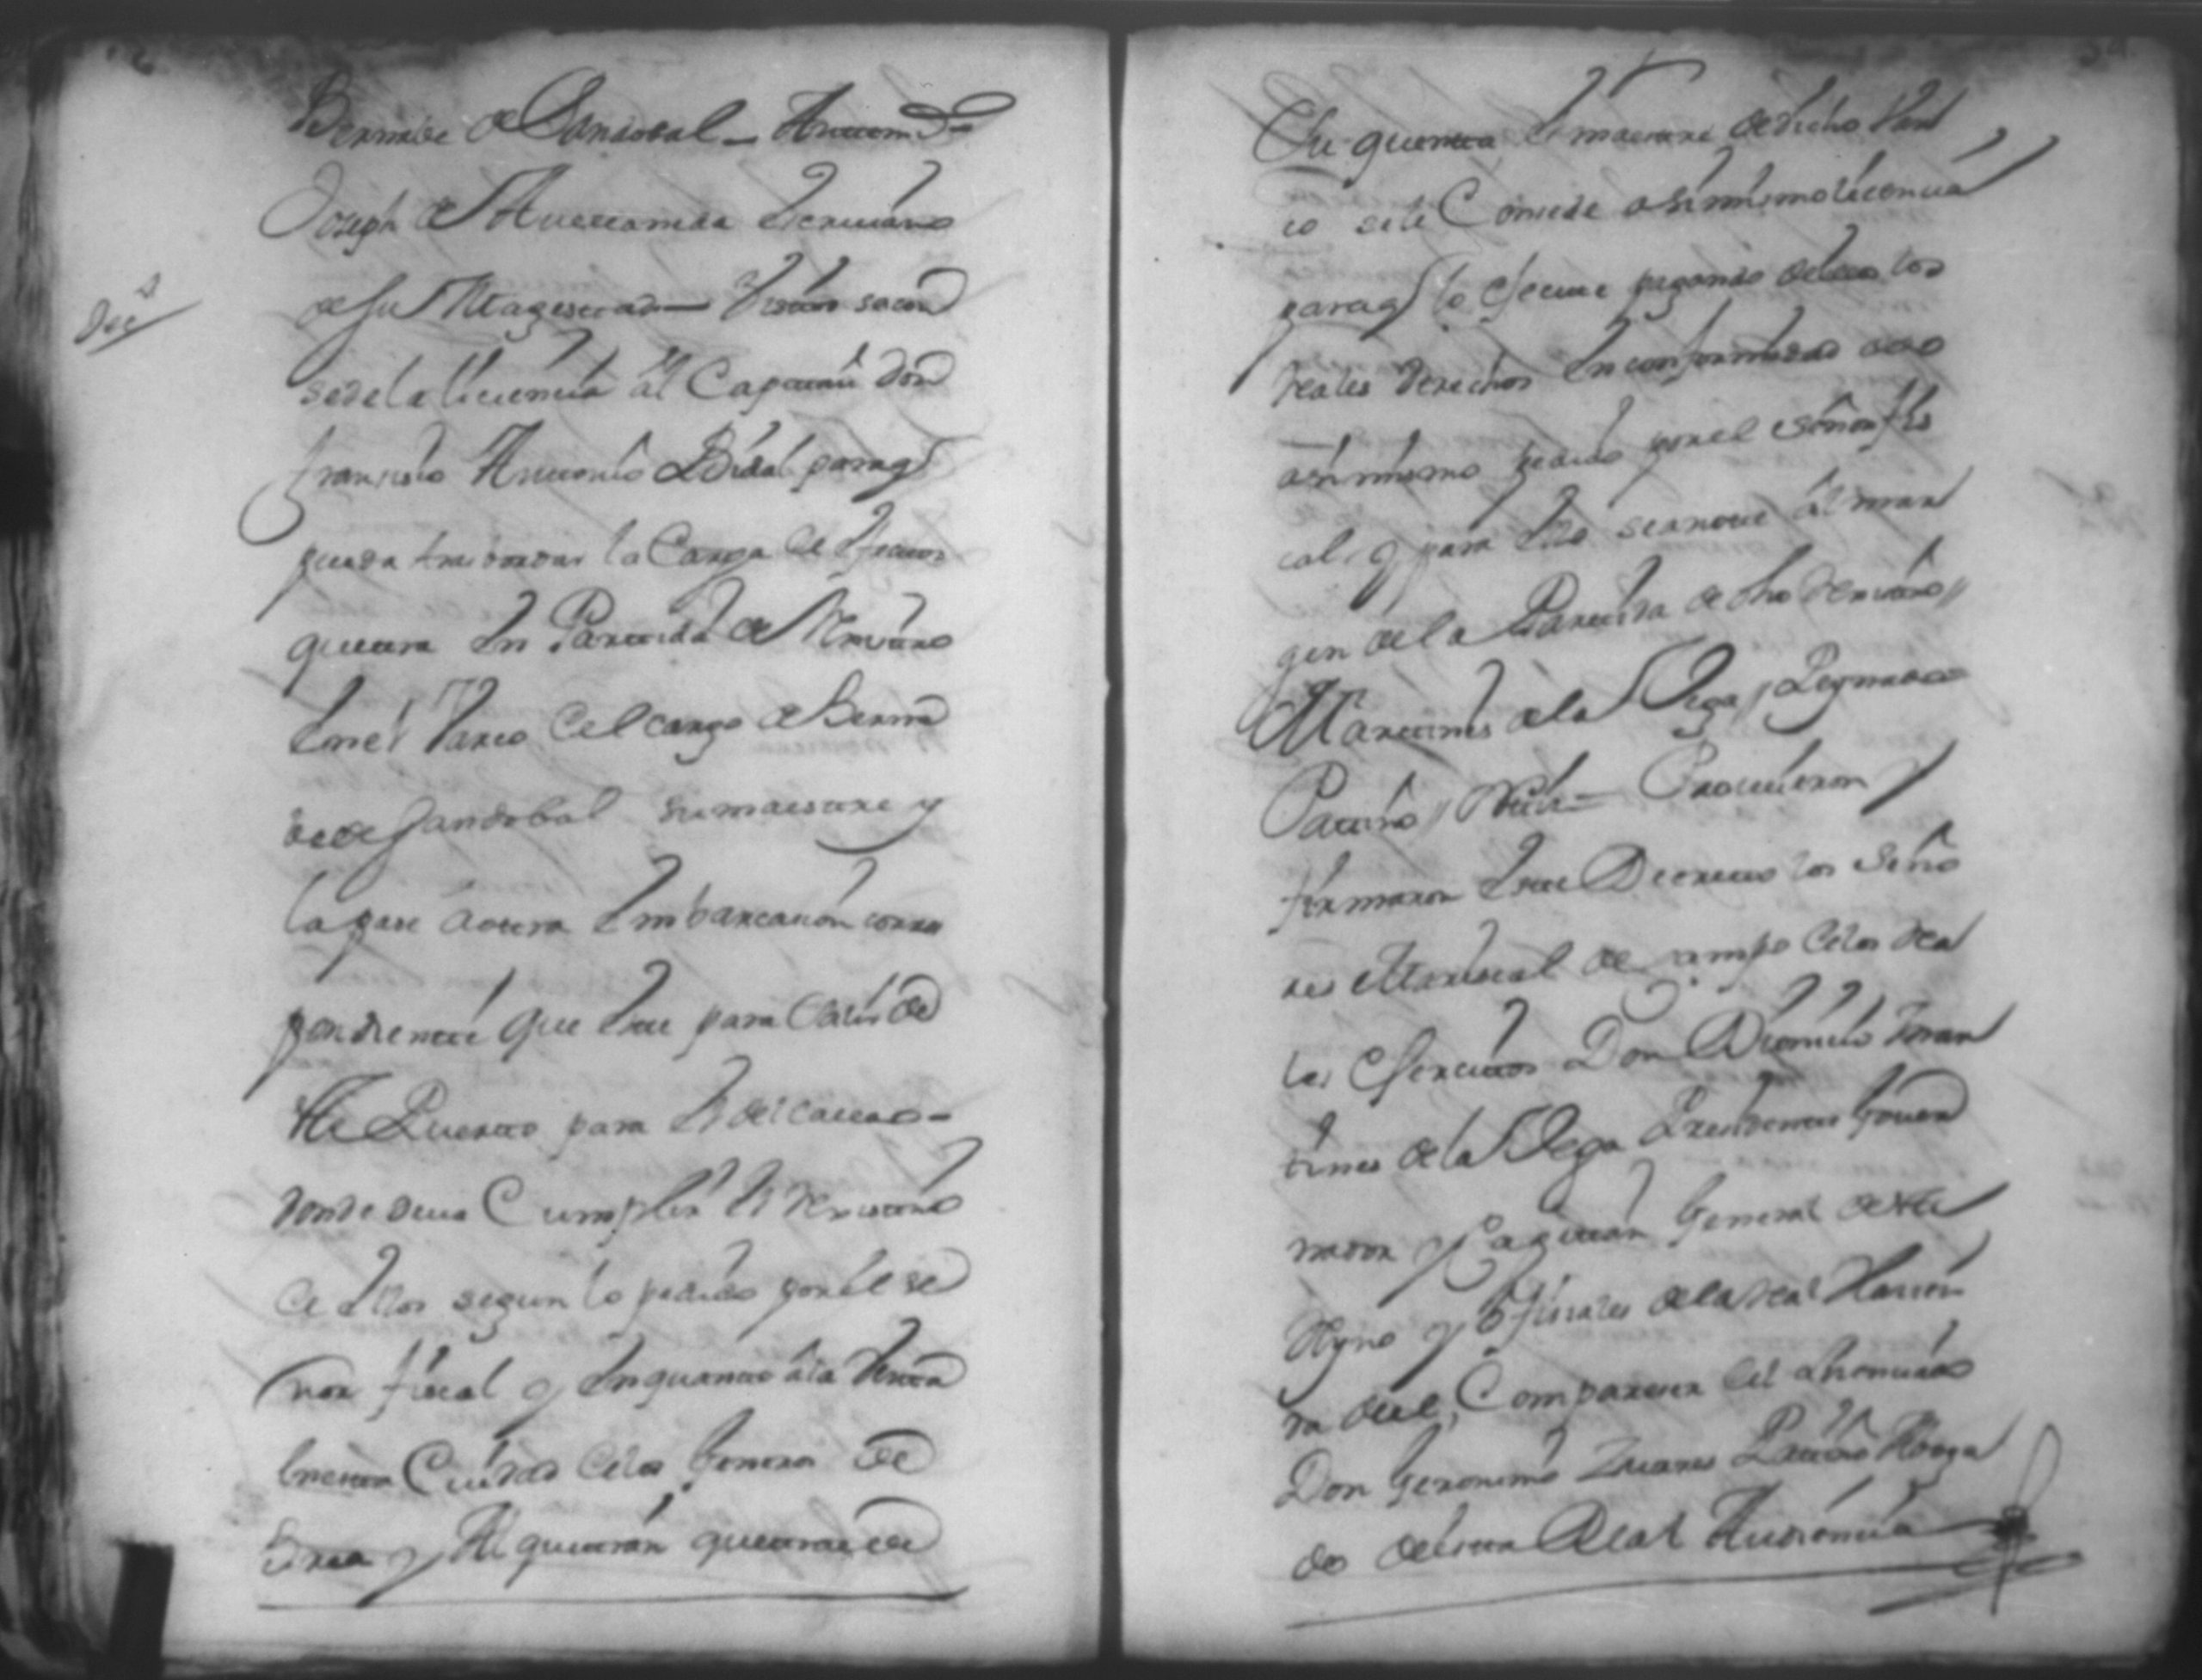 Bernave de Sandoval – Antemi
Joseph de Avellaneda Escriuano
de Su Magestad – Vistos
Dec.to
sedela licencia al Capitan Don
francisco Antonio Vidal paraq.
pueda trasbordar la Carga de efectos
quetrra en Partida de Rexistro
enel Varco del cargo de Berna
de de Sandobal su maestre y
la pase a otra Embarcacion corres
pondiente que este para salir de
ste Puerto para el del callao –
donde deue Cumplir el Rexistro
de ellos segun lo pedido por el se
ñor fiscal y enquanto ala
Ciudad de los
y Alquitran quetrae de
Su quenta el maestre de dicho Var
co sele Consede asimismo licencia
paraq. lo execute pagando los
reales derechos en conformidad de lo
asimismo pedido por el señor fis
cal, y para ello se anote al mar
gen de la Partida de dho Rexistro //
Martines de la Vega //
Patiño // – Proueieron y
firmaron este Decreto los Seño
res Mariscal de campo de los Rea
les Exercitos Don Dionicio Mar
tines de la Vega Presidente Gouer
nador y Capitan General deste
Reyno y Ofisiales de la Real Hacien
da del, Con parecer del Lisenciado
Don Geronimo Patiño Aboga
do desta Real Audiencia